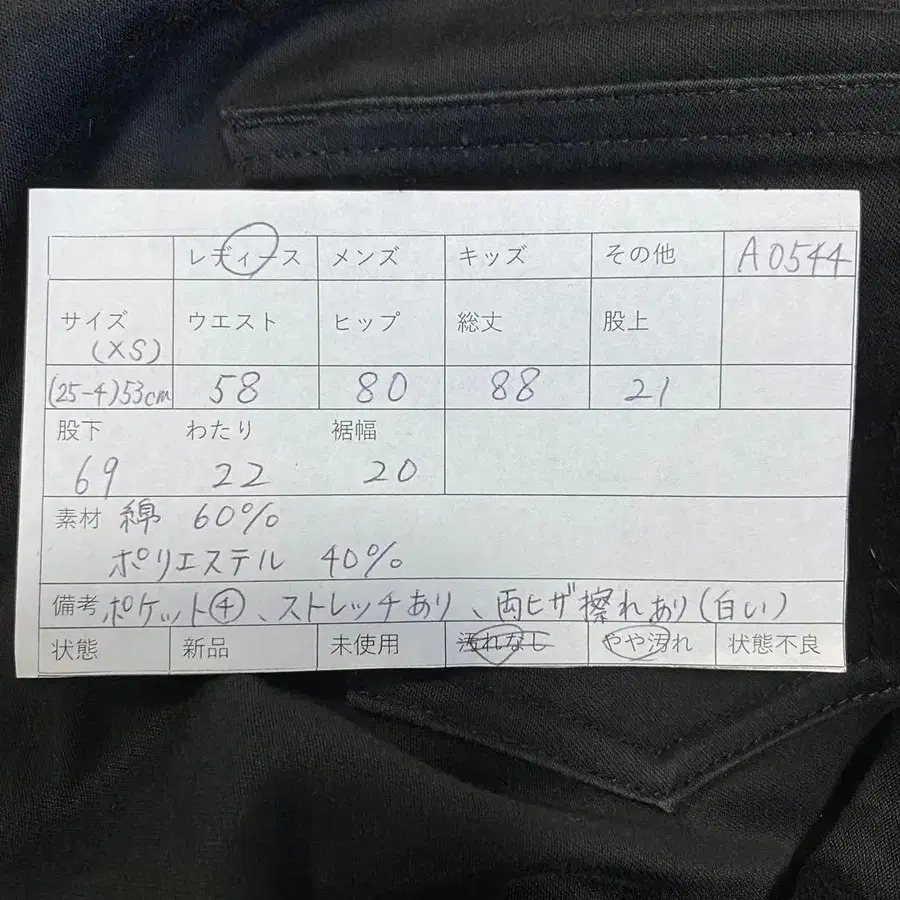 レディース メンズ キッズ その他 A0544
サイズ ウエスト ヒップ 総丈 股上
(XS)
(25-4)53cm 58 80 88 21
股下 わたり 裾幅
69 22 20
素材 綿 60%
ポリエステル 40%
備考 ポケット④、ストレッチあり、両ヒザ擦れあり(白い)
状態 新品 未使用 汚れなし やや汚れ 状態不良